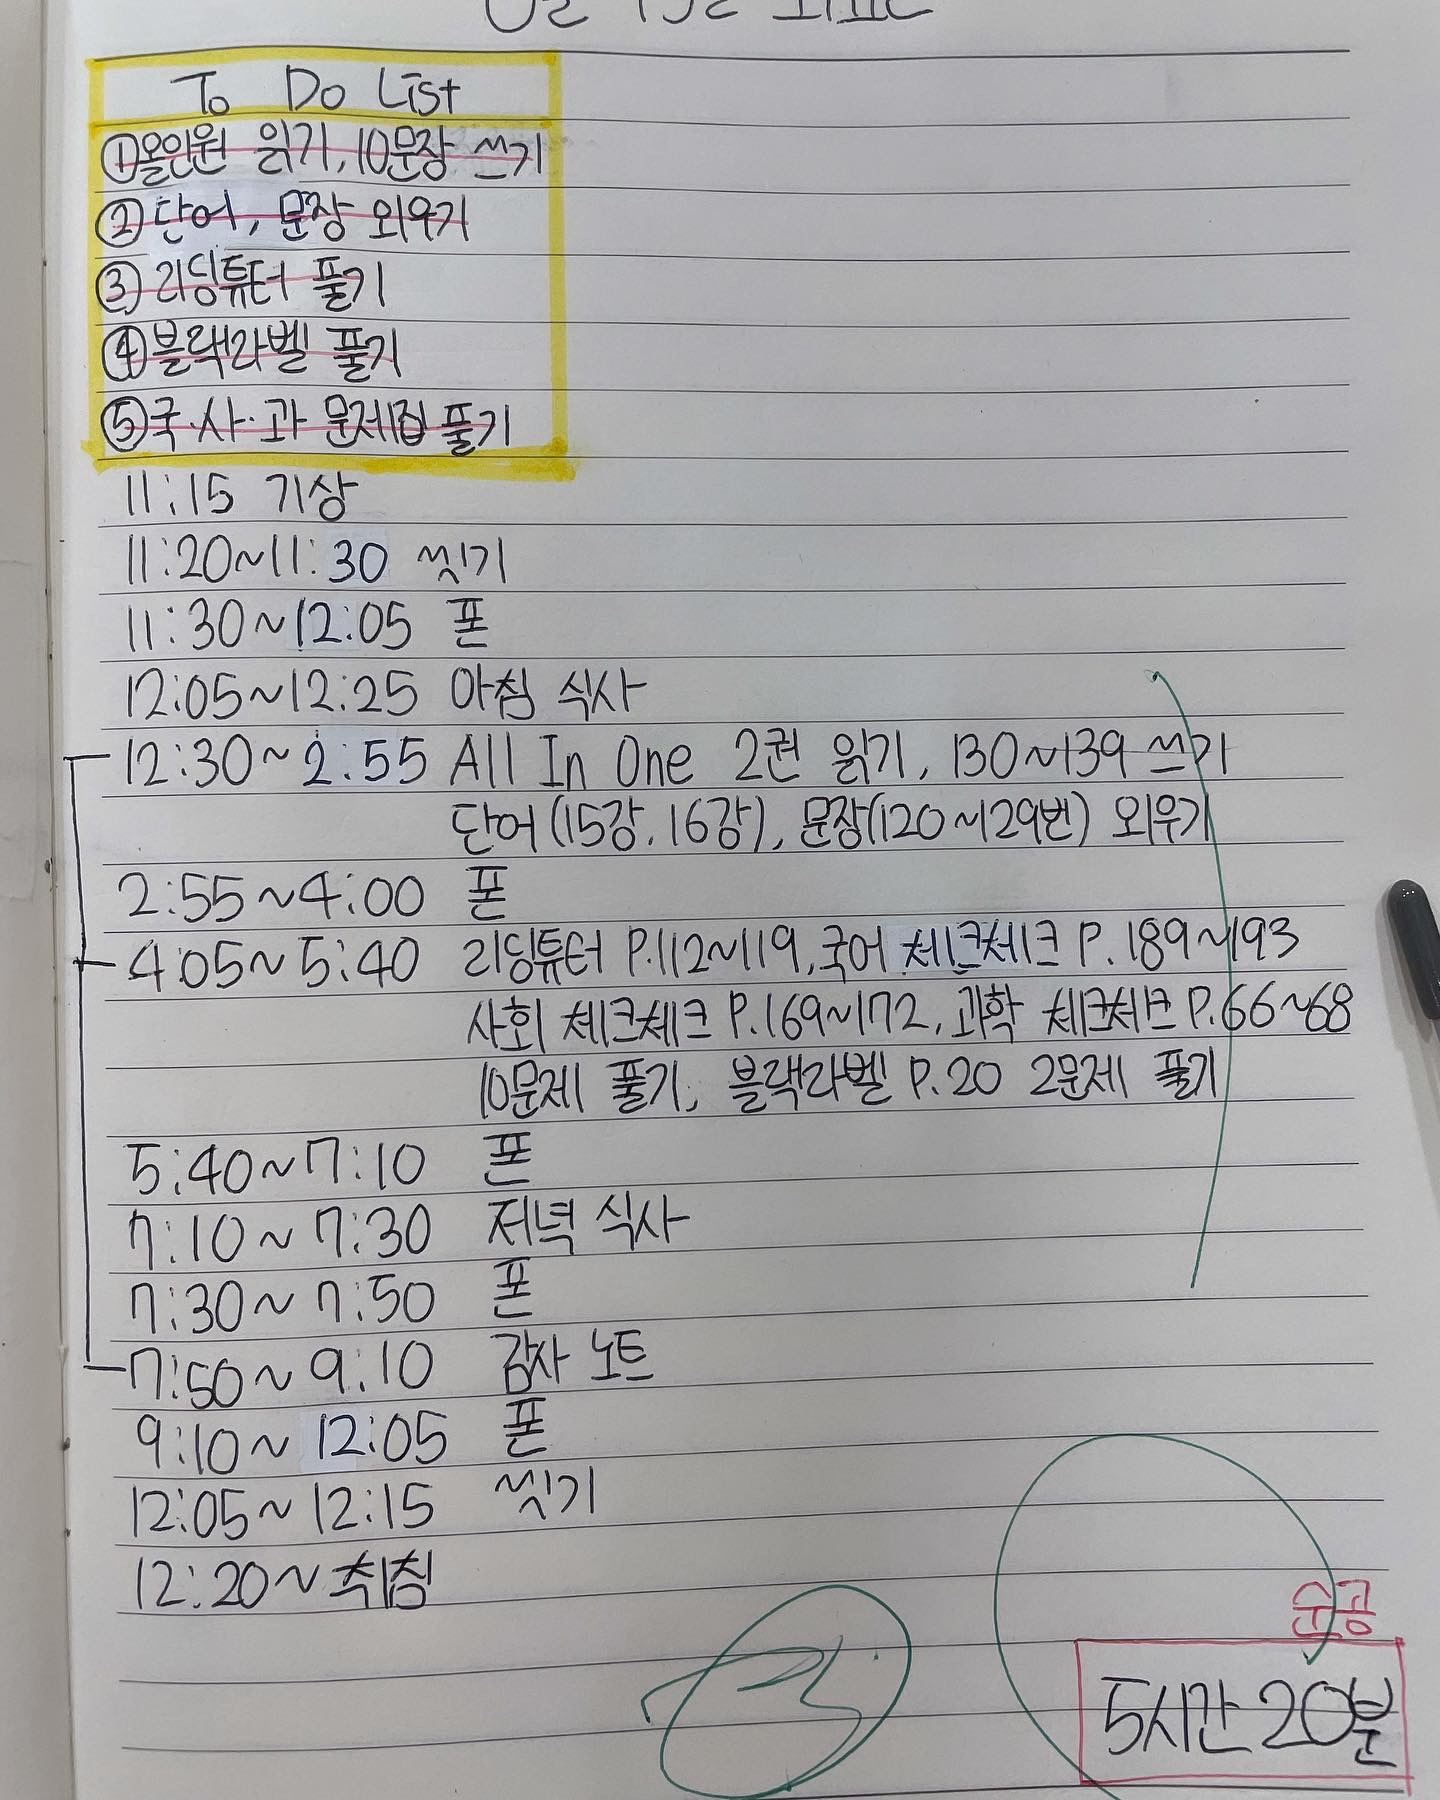 To Do List
①올인원 읽기, 10문장 쓰기
②단어, 문장 외우기
③리딩튜터 풀기
④블랙라벨 풀기
⑤국·사·과 문제집 풀기
11:15 기상
11:20~11:30 씻기
11:30~12:05 폰
12:05~12:25 아침 식사
12:30~2:55 All In One 2권 읽기, 130~139 쓰기
단어(15강, 16강), 문장(120~129번) 외우기
2:55~4:00 폰
4:05~5:40 리딩튜터 P.112~119, 국어 체크체크 P.189~193
사회 체크체크 P.169~172, 과학 체크체크 P.66~68
10문제 풀기, 블랙라벨 P.20 2문제 풀기
5:40~7:10 폰
7:10~7:30 저녁 식사
7:30~7:50 폰
7:50~9:10 감사 노트
9:10~12:05 폰
12:05~12:15 씻기
12:20~취침
순공
5시간 20분